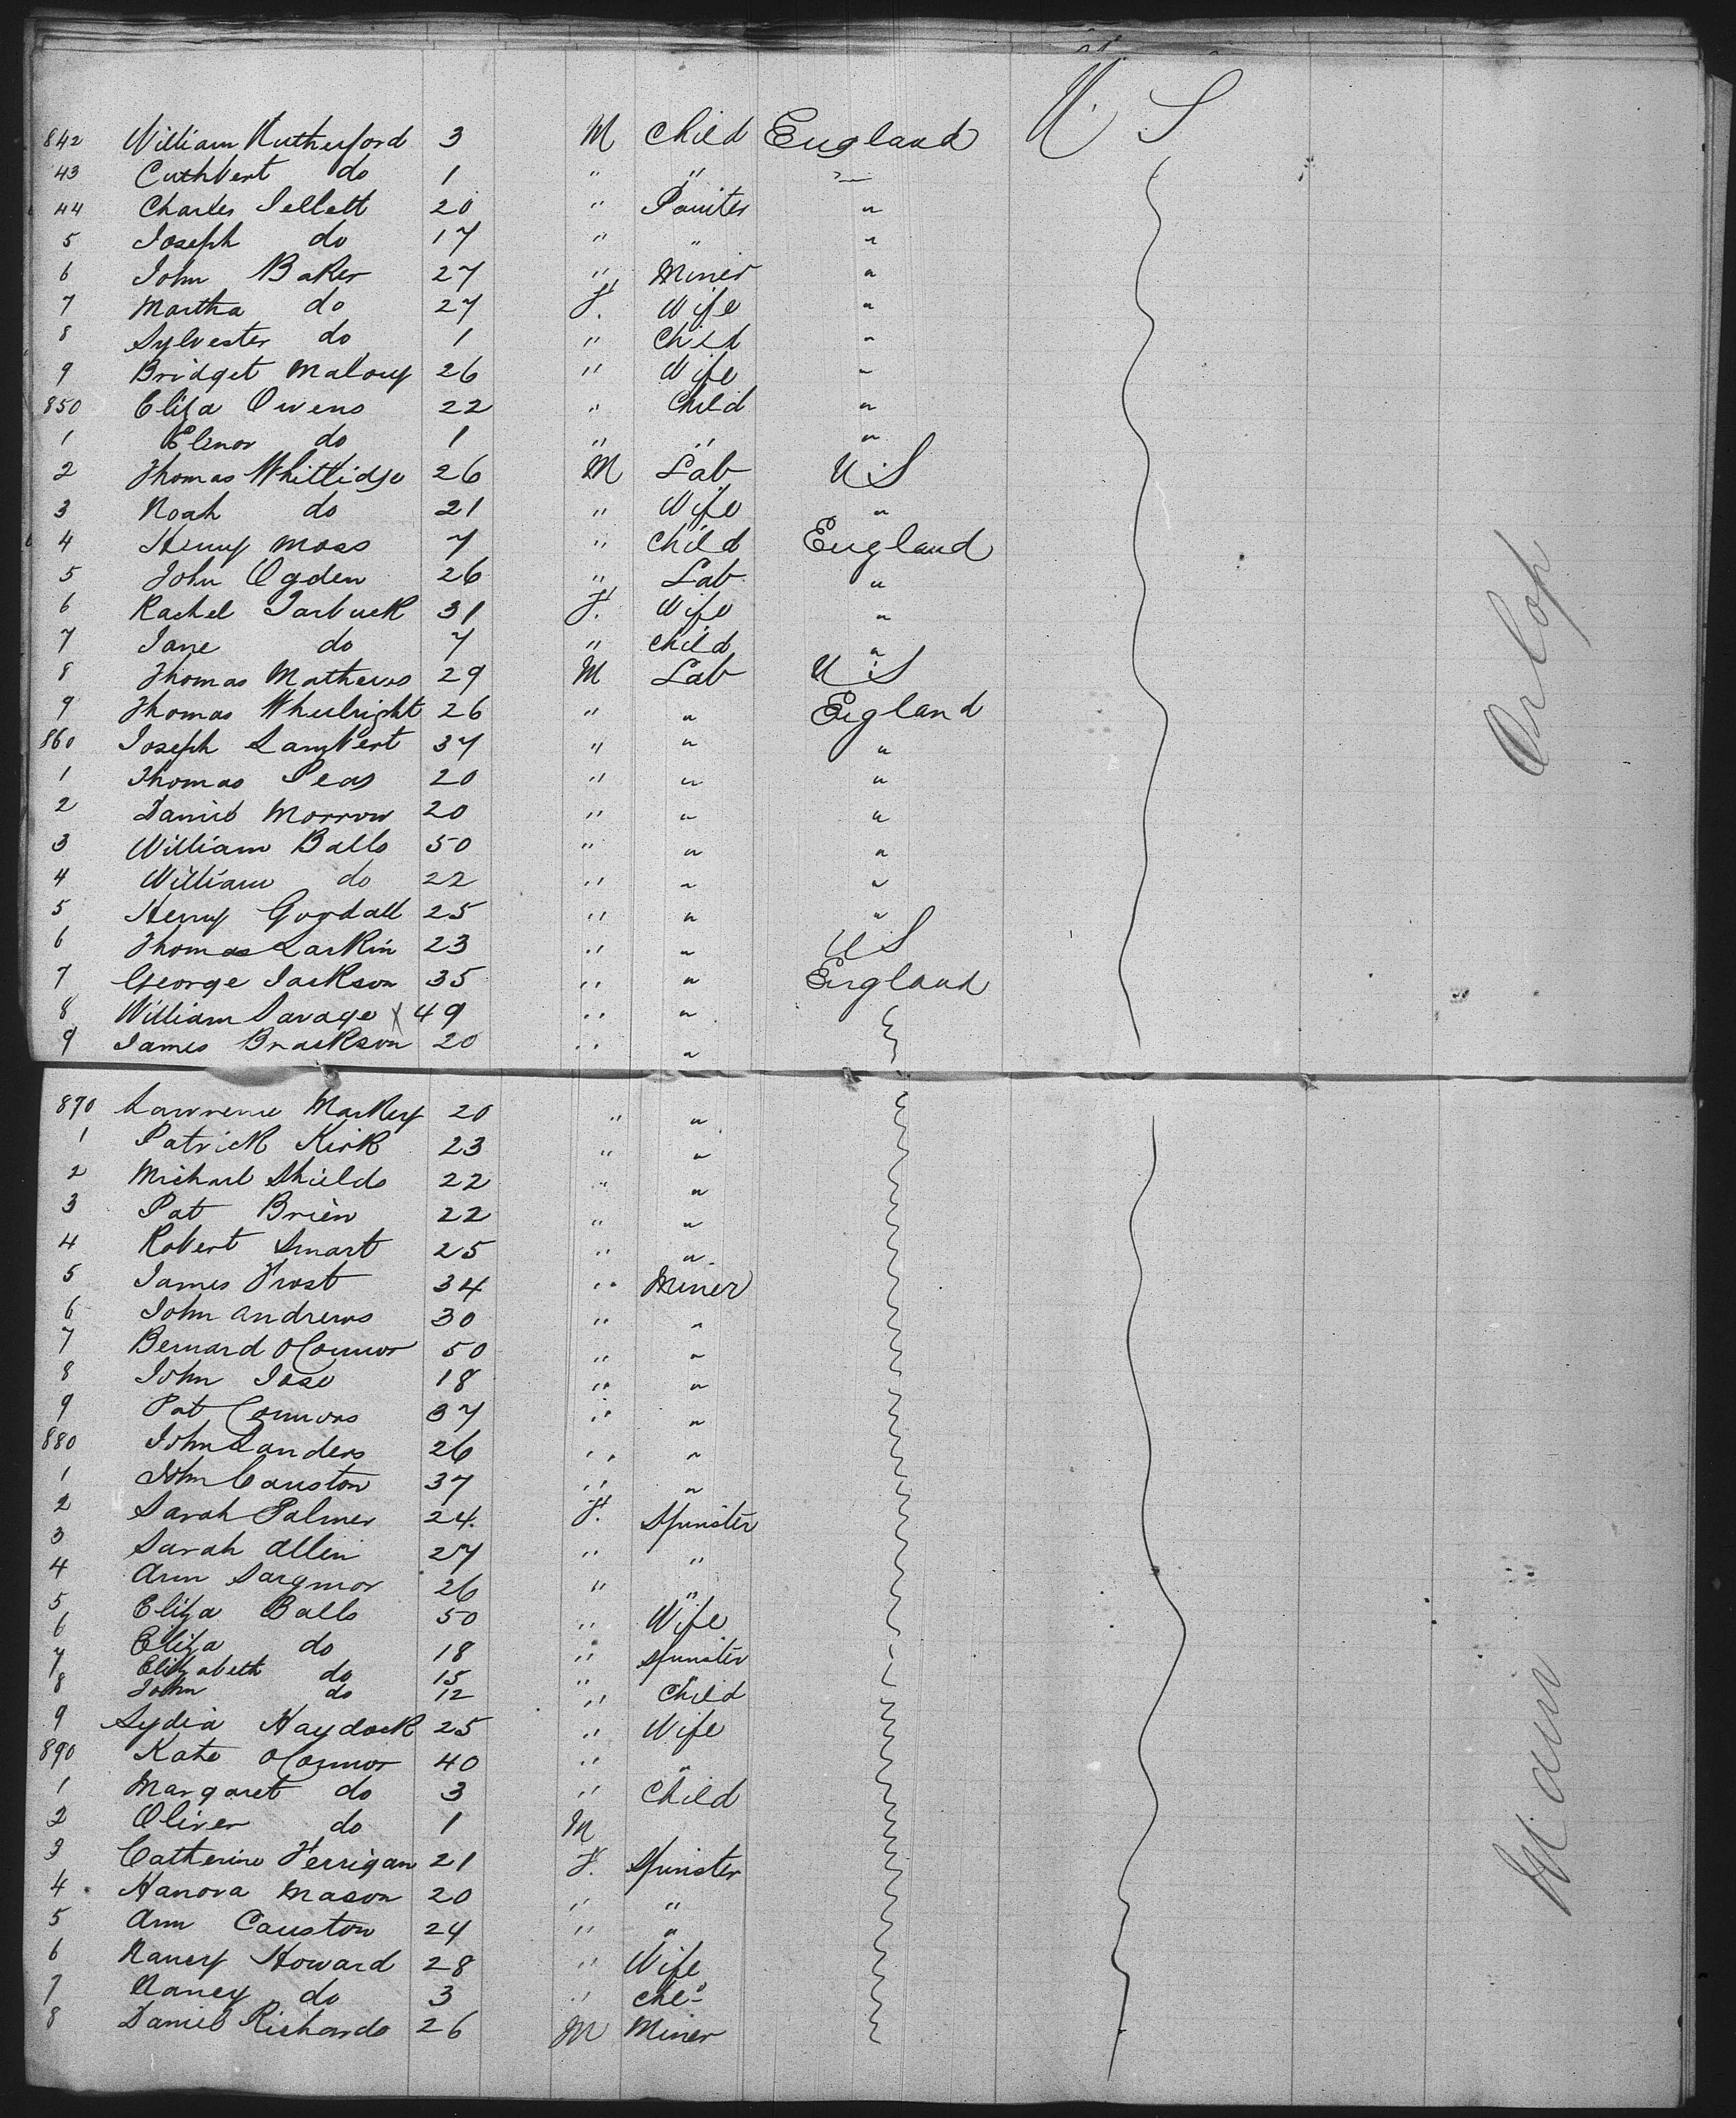 842 William Rutherford 3 M Child England U.S
43 Cuthbert do 1 " " "
44 Charles Jellett 20 " Painter "
5 Joseph do 17 " " "
6 John Baker 27 " Miner "
7 Martha do 27 F. Wife "
8 Sylvester do 1 " Child "
9 Bridget Malouy 26 " Wife "
850 Eliza Owens 22 " Child "
1 Elenor do 1 " " "
2 Thomas Whittidge 26 M Lab U.S
3 Noah do 21 " Wife "
4 Henry Moss 7 " Child England
5 John Ogden 26 " Lab "
6 Rachel Tarbuck 31 F. Wife "
7 Jane do 7 " Child "
8 Thomas Mathews 29 M Lab U.S
9 Thomas Wheelright 26 " " England
860 Joseph Lambert 37 " " "
1 Thomas Peas 20 " " "
2 Daniel Morrow 20 " " "
3 William Balls 50 " " "
4 William do 22 " " "
5 Henry Goodall 25 " " "
6 Thomas Larkin 23 " " U S
7 George Jackson 35 " " England
8 William Savage X 49 " "
9 James Brackson 20 " "
Orlop
870 Lawrence Markey 20 " "
1 Patrick Kirk 23 " "
2 Michael Shields 22 " "
3 Pat Brien 22 " "
4 Robert Smart 25 " "
5 James Frost 34 " Miner
6 John Andrews 30 " "
7 Bernard OConnor 50 " "
8 John Jose 18 " "
9 Pat Connors 37 " "
880 John Sanders 26 " "
1 John Causton 37 " "
2 Sarah Palmer 24. F. Spinster
3 Sarah Allen 27 " "
4 Ann Sargmor 26 " "
5 Eliza Balls 50 " Wife
6 Eliza do 18 " Spinster
7 Elizabeth do 15 "
8 John do 12 " Child
9 Lydia Haydock 25 " Wife
890 Kate OConnor 40 " "
1 Margaret do 3 " Child
2 Oliver do 1 M
3 Catherine Ferrigan 21 F. Spinster
4 Hanora Mason 20 " "
5 Ann Causton 24 " "
6 Nancy Howard 28 " Wife
7 Nancy do 3 " Chd
8 Daniel Richards 26 M Miner
Main